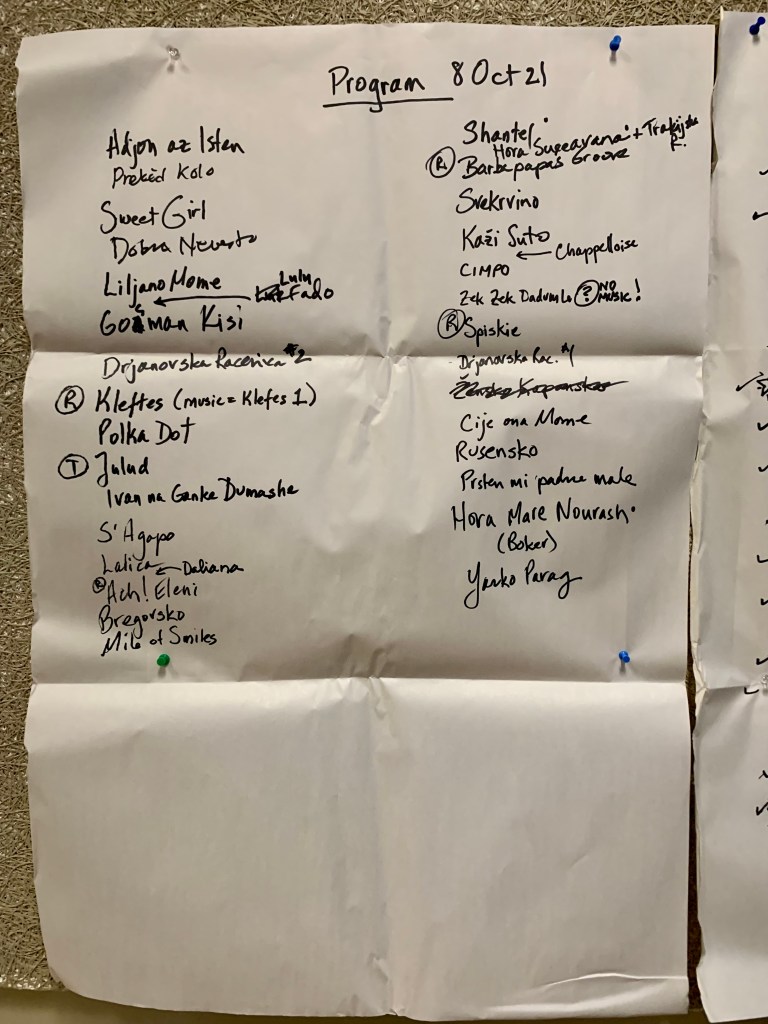 Program 8 Oct 21
Adjon az Isten
Prekid Kolo
Sweet Girl
Dobra Nevesto
Liljano Mome
← Lulu Fado
Kisi
Drjanovska Racenica #2
Ⓡ Kleftes (music = Klefes 1)
Polka Dot
Ⓣ Julud
Ivan na Ganka Dumashe
S'Agapo
Lalica ← Daliana
Ⓡ Ach! Eleni
Bregovsko
Mile of Smiles
Shantel
Hora Suceavana + Trakijska R.
Ⓡ Barbapapas Groove
Svekrvino
Kaži Suto
← Chappelloise
CIMPO
Zek Zek Dadumlo ? NO MUSIC!
Ⓡ Spiskie
Drjanovska Rac. #1
Cije ona Mome
Rusensko
Prsten mi padna male
Hora Mare Nourash
(Boker)
Yanko Parag